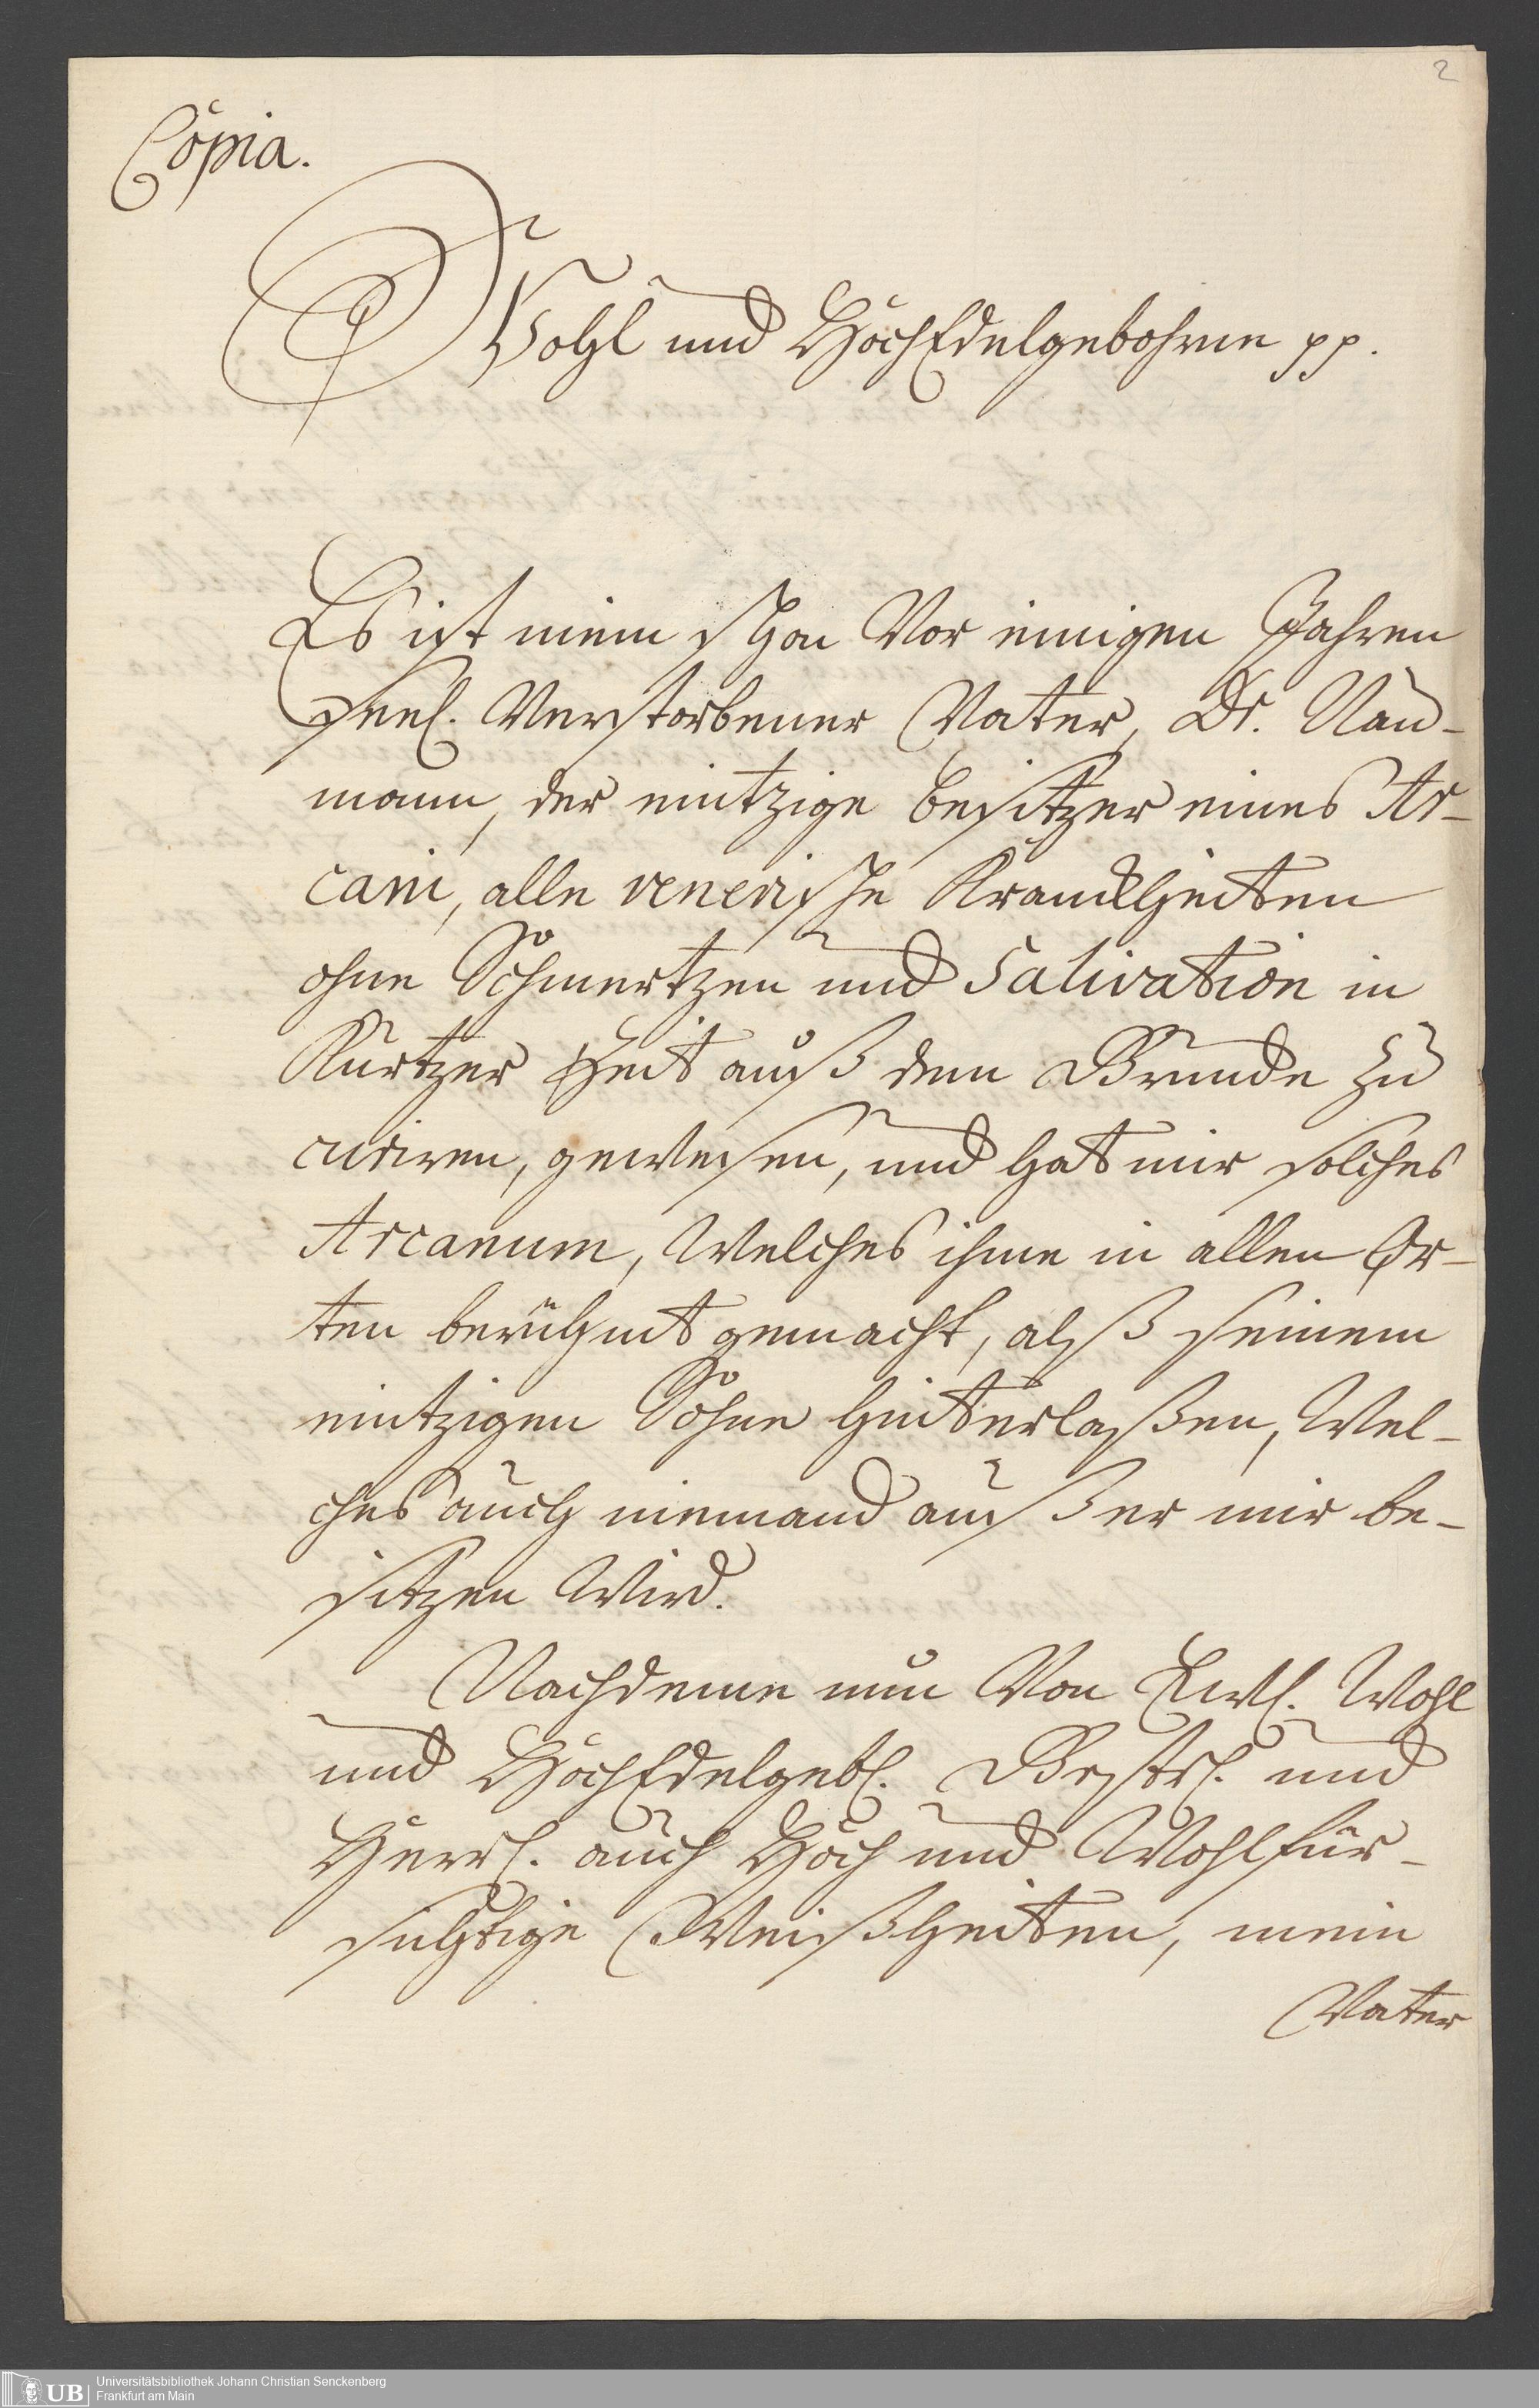 2
Copia.
Wohl und HochEdelgebohrne pp.
Es ist mein schon Vor einigen Jahren
seel. Verstorbener Vater, Dr. Nau-
mann, der eintzige besitzer eines Ar-
cani, alle venerische Kranckheiten
ohne Schmertzen und Salivation in
Kurtzer Zeit auß dem Grunde zu
curiren, gewesen, und hat mir solches
Arcanum, Welches ihme in allen Or-
ten berühmt gemacht, alß seinem
eintzigen Sohne hinterlaßen, Wel-
ches auch niemand außer mir be-
sitzen Wird.
Nachdeme nun Von Ewl. Wohl
und HochEdelgebl. Gestrl. und
Herrl. auch Hoch und Wohlfür-
sichtige Weißheiten, mein
Vater
UB
Universitätsbibliothek Johann Christian Senckenberg
Frankfurt am Main